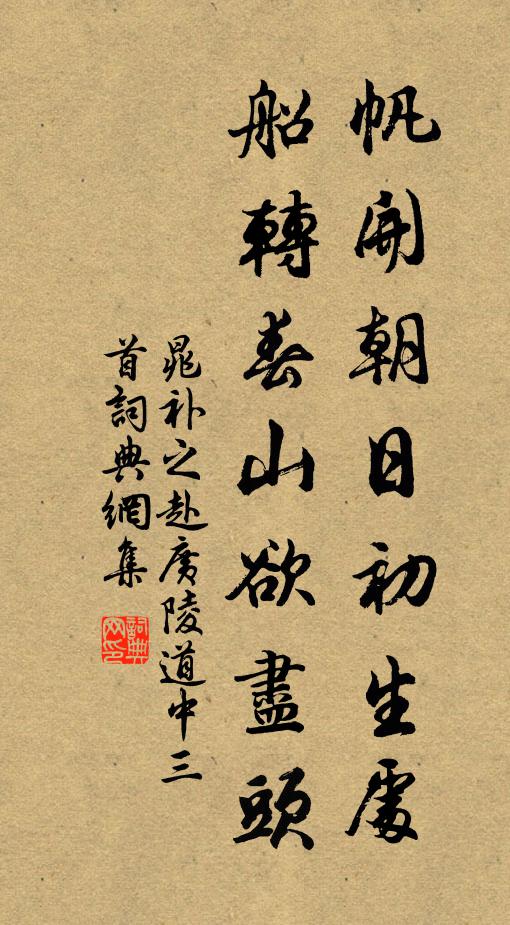 帆開朝日初生處
船轉春山欲盡頭
晁补之赴廣陵道中三
首詞典網集
詞典
网印